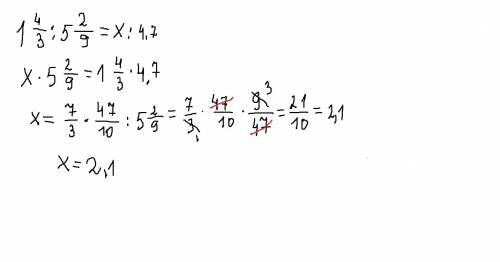 1 4/3 : 5 2/9 = x : 4,7
x · 5 2/9 = 1 4/3 · 4,7
x = 7/3 · 47/10 : 5 2/9 = 7/3 1 · 47/10 · 9 3/47 = 21/10 = 2,1
x = 2,1